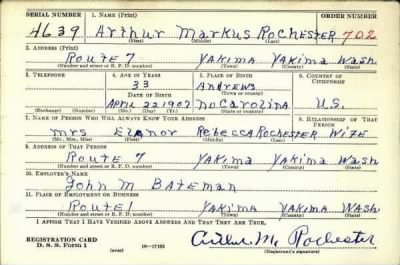 SERIAL NUMBER 1. NAME (Print) ORDER NUMBER
4639 Arthur Markus Rochester 702
(First) (Middle) (Last)
2. ADDRESS (Print)
Route 7 Yakima Yakima Wash
(Number and street or R. F. D. number) (Town) (County) (State)
3. TELEPHONE 4. AGE IN YEARS 5. PLACE OF BIRTH 6. COUNTRY OF CITIZENSHIP
33 Andrews
DATE OF BIRTH (Town or county)
April 22 1907 No Carolina U.S.
(Exchange) (Number) (Mo.) (Day) (Yr.) (State or country)
7. NAME OF PERSON WHO WILL ALWAYS KNOW YOUR ADDRESS 8. RELATIONSHIP OF THAT PERSON
Mrs Elanor Rebecca Rochester Wife
(Mr., Mrs., Miss) (First) (Middle) (Last)
9. ADDRESS OF THAT PERSON
Route 7 Yakima Yakima Wash
(Number and street or R. F. D. number) (Town) (County) (State)
10. EMPLOYER'S NAME
John M Bateman
11. PLACE OF EMPLOYMENT OR BUSINESS
Route 1 Yakima Yakima Wash
(Number and street or R. F. D. number) (Town) (County) (State)
I AFFIRM THAT I HAVE VERIFIED ABOVE ANSWERS AND THAT THEY ARE TRUE.
REGISTRATION CARD
D. S. S. Form 1 (over) 16—17105 Arthur M. Rochester
(Registrant's signature)